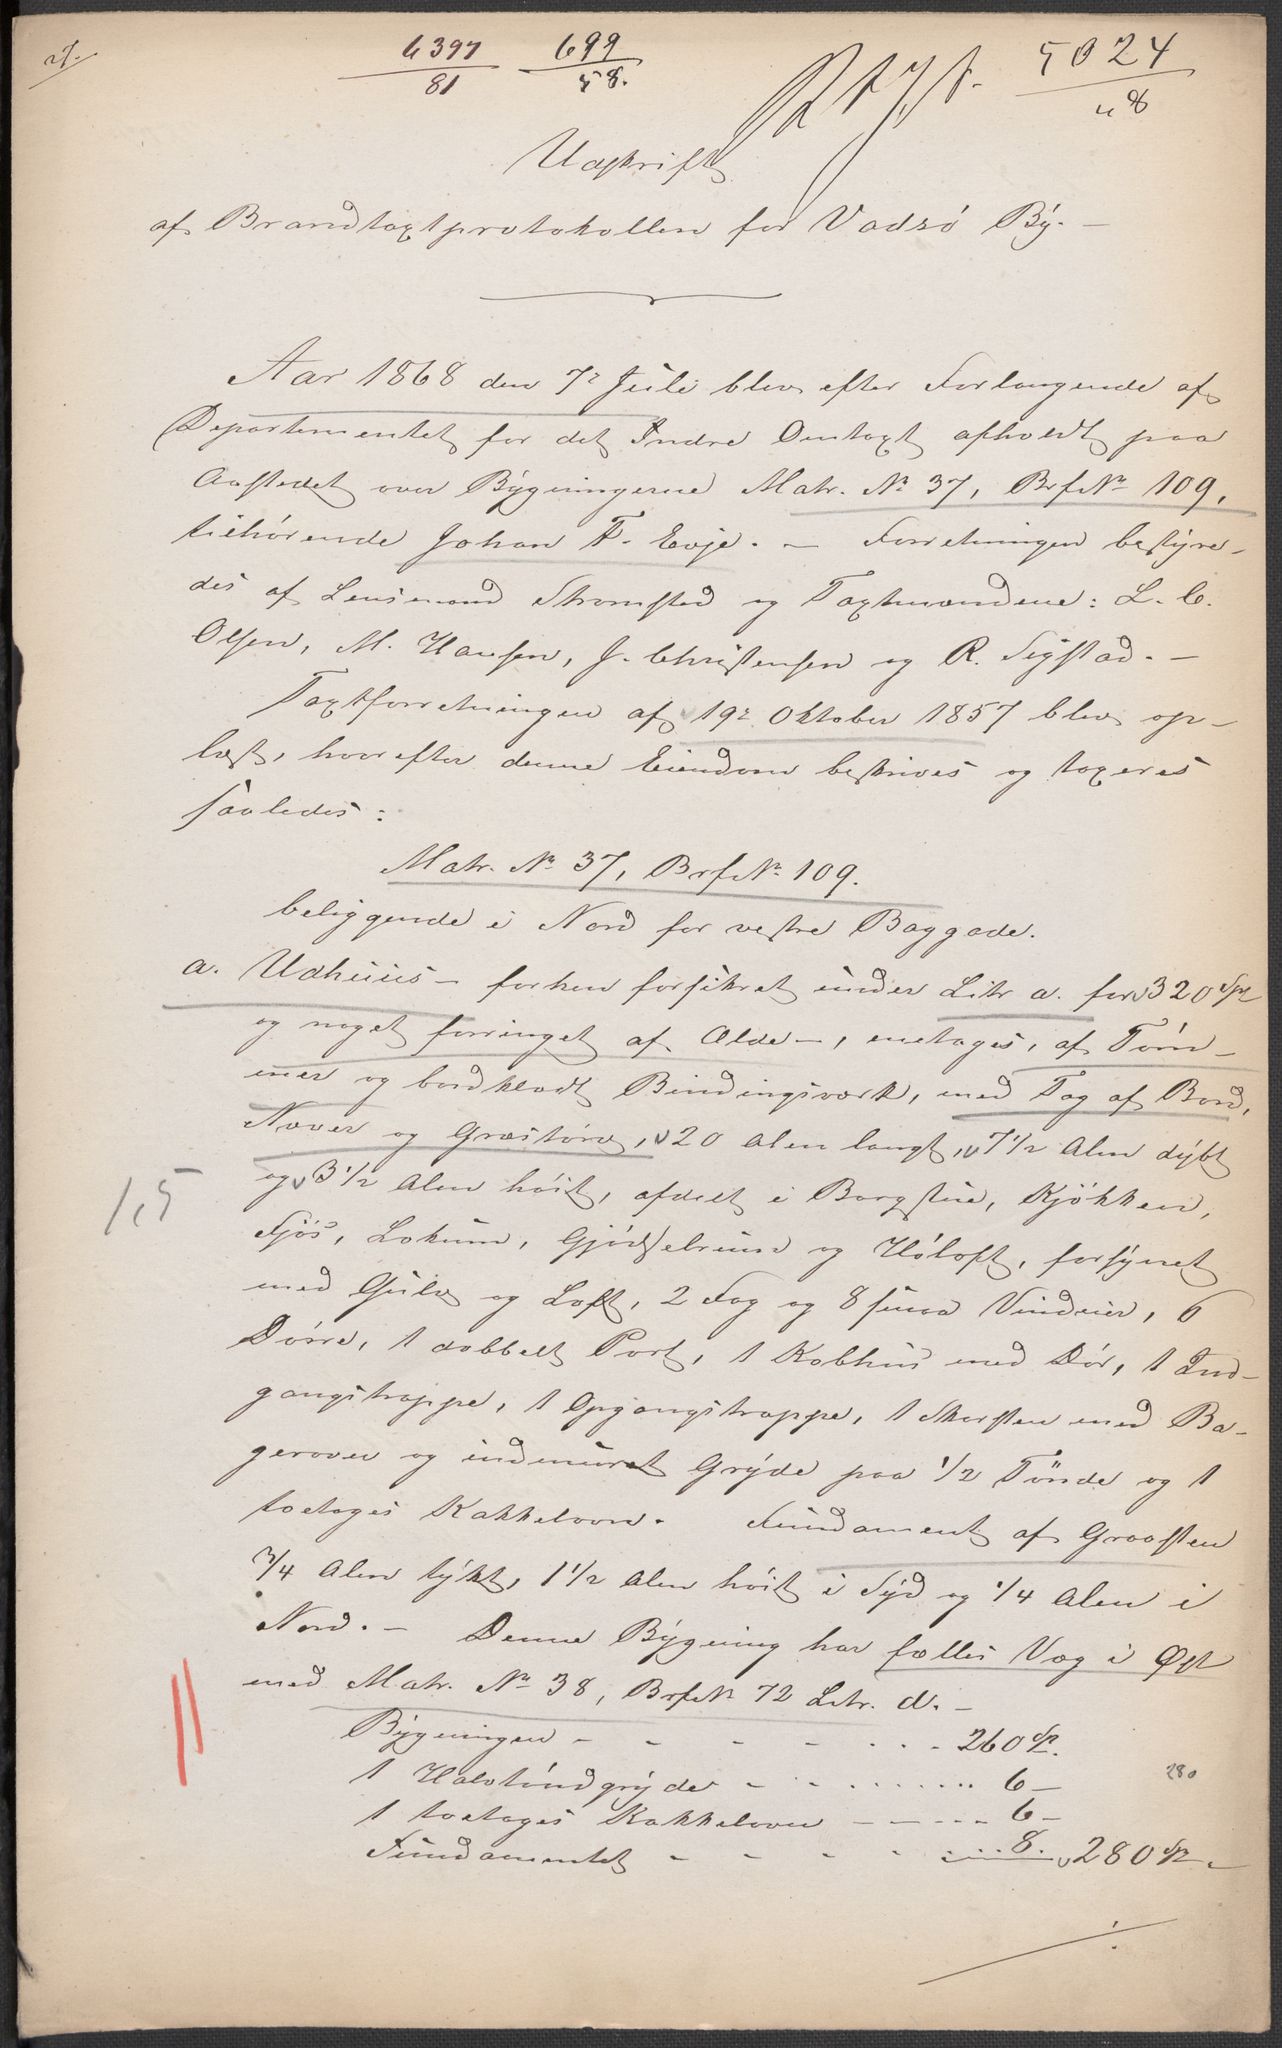 6397/81 699/58. 5024/48
Udskrift
af Brandtaxtprotokollen for Vadsö By. —
Aar 1868 den 7de Juli blev efter Forlangende af
Departementet for det Indre Omtaxt afholdt paa
Aastedet over Bygningerne Matr. No 37, Brf. No 109,
tilhørende Johan F. Evje. — Forretningen bestyre-
des af Lensmand Stromsted og Taxtmændene: L. C.
Olsen, M. Hansen, J. Christensen og R. Sigstad. —
Taxtforretningen af 19de Oktober 1857 blev op-
læst, hvorefter denne Eiendom beskrives og taxeres
saaledes:
Matr. No 37, Brf. No 109.
beliggende i Nord for vestre Baggade.
a. Udhuus — forhen forsikret under Litr a. for 320 Spd
og noget forringet af Ælde —, enetages, af Töm-
mer og bordklædt Bindingsværk, med Tag af Bord,
Næver og Græstörv, 20 Alen langt, 7 1/2 Alen dybt
og 3 1/2 Alen höit, afdelt i Borgstue, Kjökken,
Fjös, Lokum, Gjödselrum og Höloft, forsynet
med Gulv og Loft, 2 Fag og 8 smaa Vinduer, 6
Dörre, 1 dobbelt Port, 1 Kobhus med Dör, 1 Ind-
gangstrappe, 1 Opgangstrappe, 1 Skorsten med Ba-
gerovn og indmuret Gryde paa 1/2 Tönde og 1
toetages Kakkelovn. Fundament af Graasten
3/4 Alen tykt, 1 1/2 Alen höit i Syd og 1/4 Alen i
Nord. — Denne Bygning har fælles Væg i Øst
med Matr. No 38, Brf. No 72 Litr. d. —
Bygningen - - - - - - - 260 Sp.
1 Halvtöndgryde - - - . . . . . . 6 — 280
1 toetages Kakkelovn - - - - - 6 —
Fundamentet - - - - - . . . . 8. 280 Sp. —
1,5
./.